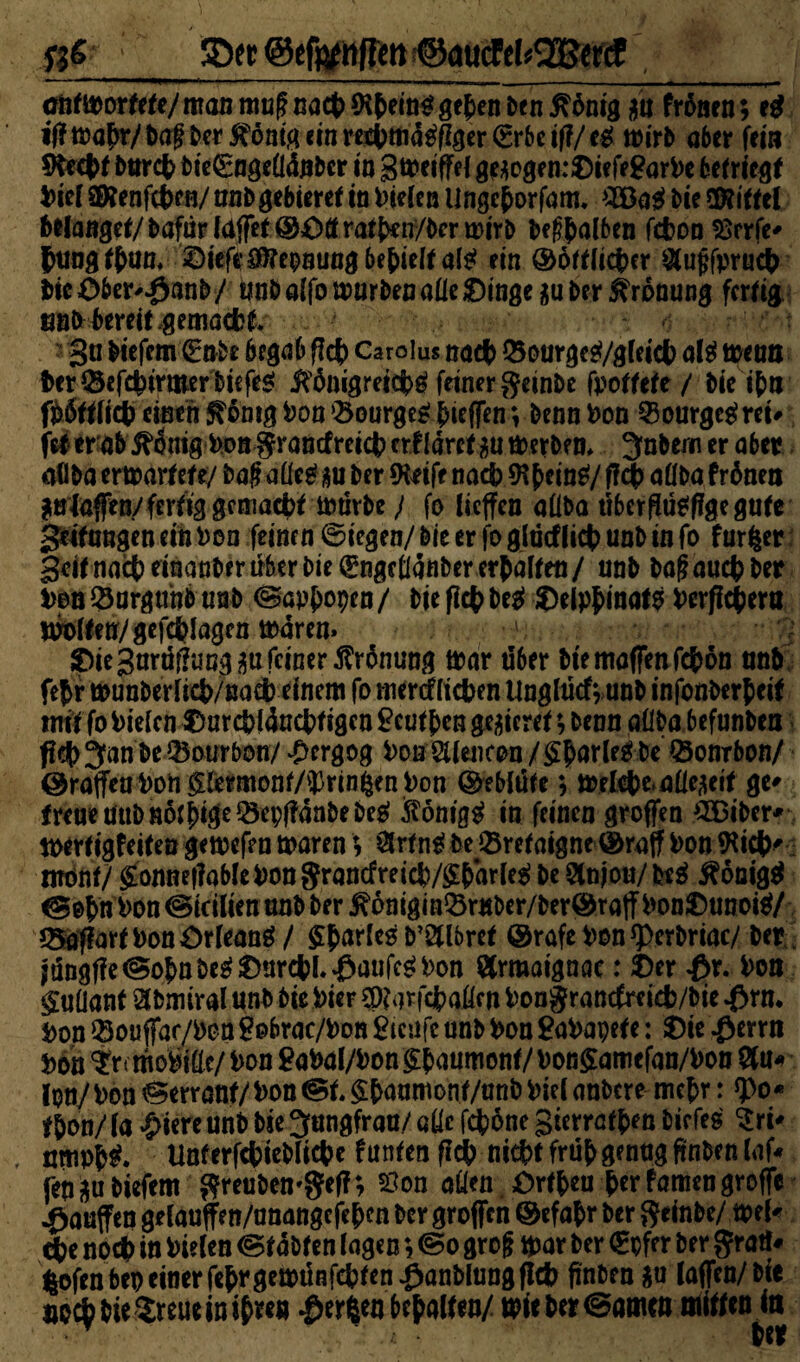 536 Der Gespenssten Gauckel-Werck
antwortete/ man muß nach Rheins gehen den König zu krönen; es
ist wahr/ daß der König ein rechtmäßiger Erbe ist/ es wird aber sein
Recht durch die Engelländer in Zweiffel gezogen: Diese Larve betriegt
viel Menschen/ und gebieret in vielen Ungehorsam. Was die Mittel
belanget/ dafür lässet GOtt rathen/ der wird deßhalben schon Verse-
hung thun. Diese Meynung behielt als ein Göttlicher Außspruch
die Ober-Hand/ und also wurden alle Dinge zu der Krönung fertig
und bereit gemacht.
Zu diesem Ende begab sich Carolus nach Bourges/ gleich als wenn
der Beschirmer dieses Königreichs seiner Feinde spottete / die ihn
spöttlich einen König von Bourges hiessen; denn von Bourges rei-
set er ab König von Franckreich erkläret zu werden. Indem er aber
allda erwartete/ daß alles zu der Reise nach Rheins/ sich allda krönen
zu lassen/ fertig gemacht würde / so lieffen allda überflüssige gute
Zeitungen ein von seinen Siegen/ die er so glücklich und in so kurtzer
Zeit nach einander über die Engelländer erhalten / und daß auch der
von Burgund und Saphoyen / die sich des Delphinats versichern
wolten/ geschlagen wären.
Die Zurüstung zu seiner Krönung war über die massen schön und
sehr wunderlich/ nach einem so mercklichen Unglück; und insonderheit
mit so vielen Durchläuchtigen Leuthen gezieret; denn allda befunden
sich Jan de Bourbon/ Hergog von Alencon / Charles de Bonrbon/
Graffen von Clermont/ Printzen von Geblüte ; welche allezeit ge-
treue und nöthige Beystände des Königs in seinen grossen Wider-
wertigkeiten gewesen waren ; Artns de Bretaigne Graff von Rich-
mont/ Connestable von Franckreich/ Charles de Anjou/ des Königs
Sohn von Sicilien und der Königin Bruder/ der Graff von Dunois/
Bastart von Orleans / Charles d'Albret Grafe von Perdriac/ der
jüngste Sohn des Durchl. Haufes von Armaignac : Der Hr. von
Cullant Admiral und die vier Marschallen von Franckreich/ die Hrn.
von Boussac/ von Lobrac/ von Licuse und von Lavapete: Die Herrn
von Tremoville/ von Laval/ von Chaumont/ von Camesan/ von Au-
lon/ von Serrant/ von St. Chaumont/ und viel andere mehr: Po-
thon/ la Hiere und die Jungfrau/ alle schöne Zierrathen dieses Tri-
umphs. Unterschiedliche kunten sich nicht früh genug finden laf-
sen zu diesem Freuden-Fest; Von allen Ortheu her kamen grosse
Hauffen gelauffen/ unangesehen der grossen Gefahr der Feinde/ wel-
che noch in vielen Städten lagen; So groß war der Eyfer der Frau-
tzosen bey einer sehr gewünschten Handlung sich finden zu lassen/ die
noch die Treue in ihren Hertzen behalten/ wie der Samen mitten in
der